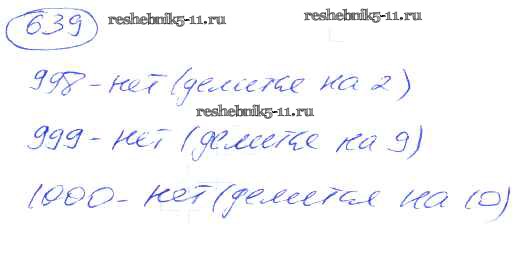 639 reshebnik5-11.ru reshebnik5-11.ru
998 - нет (делится на 2)
reshebnik5-11.ru
999 - нет (делится на 9)
1000 - нет (делится на 10)